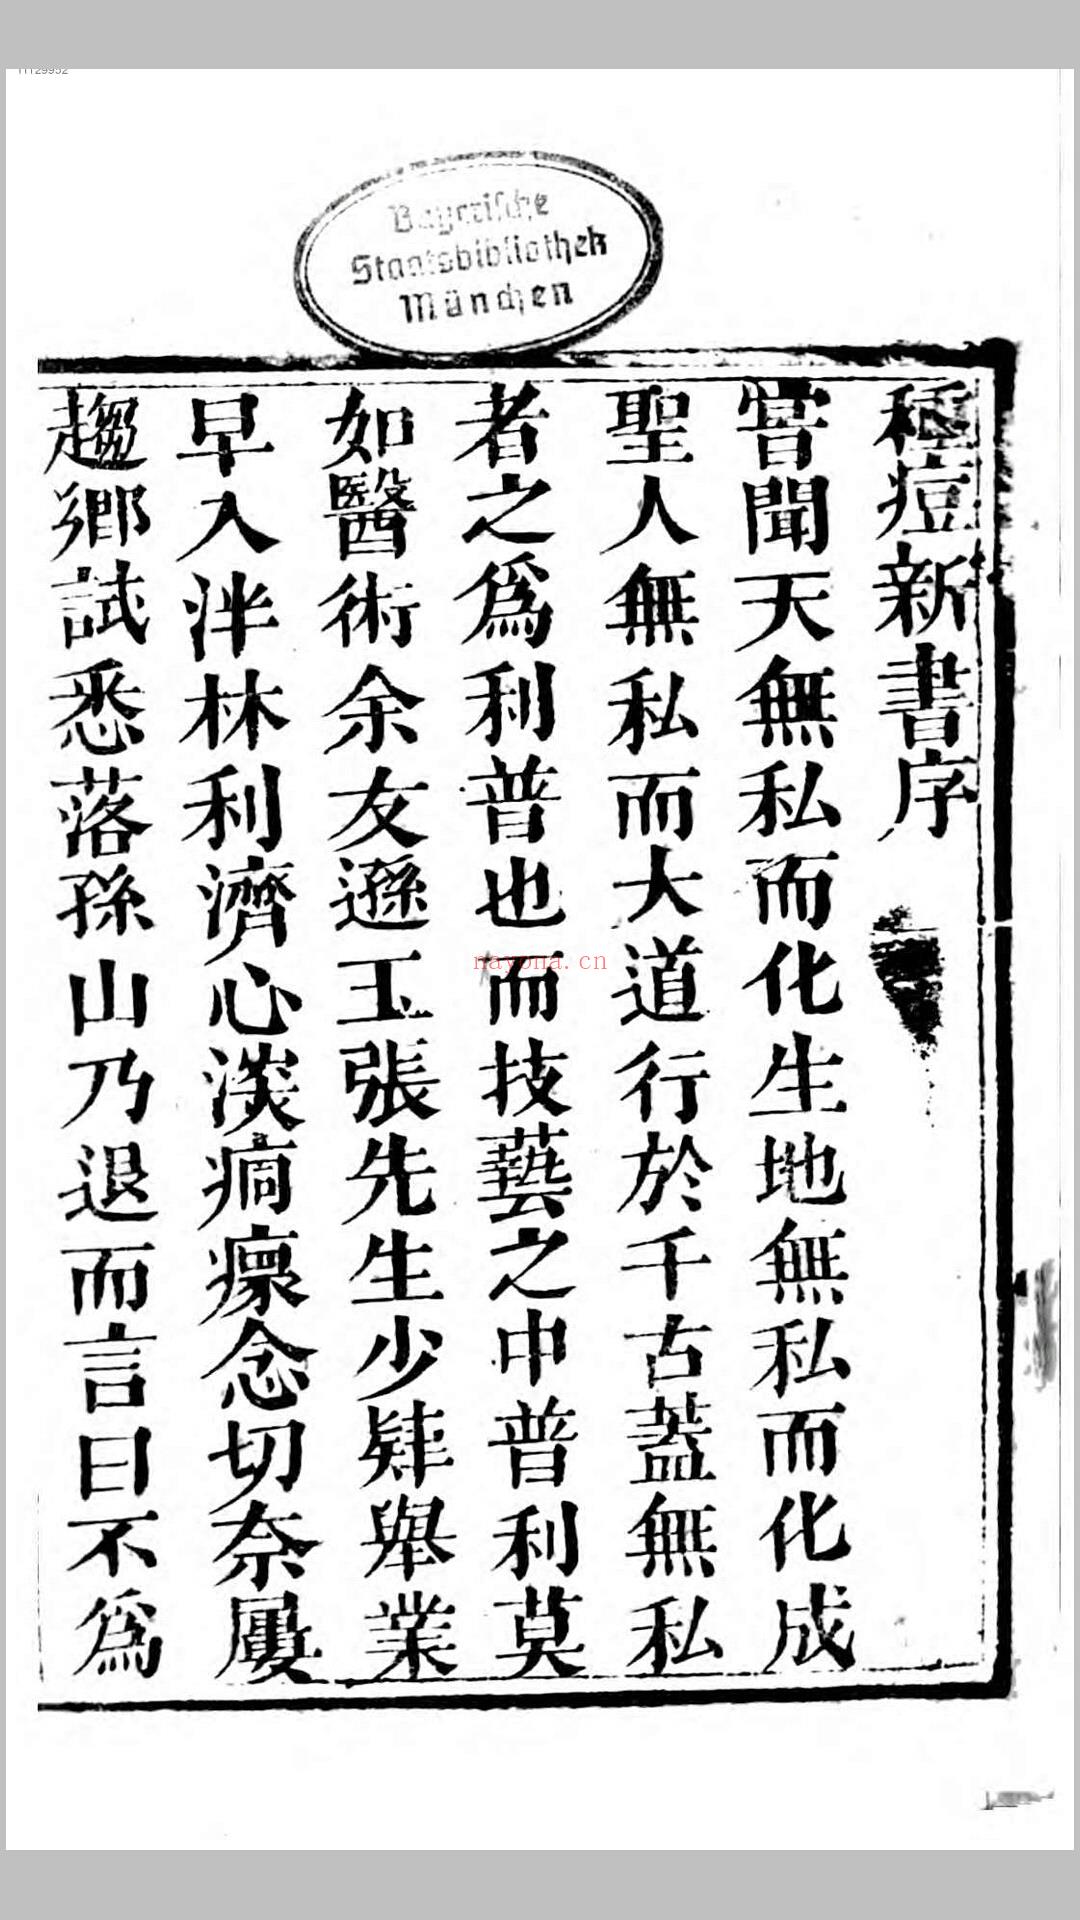 11129952
Bayerische
Staatsbibliothek
München
種痘新書序
嘗聞天無私而化生地無私而化成
聖人無私而大道行於千古蓋無私
者之爲利普也而技藝之中普利莫
如醫術余友遜玉張先生少肄舉業
早入泮林利濟心淡痌瘝念切奈屢
趨鄉試悉落孫山乃退而言曰不爲
nayona.cn